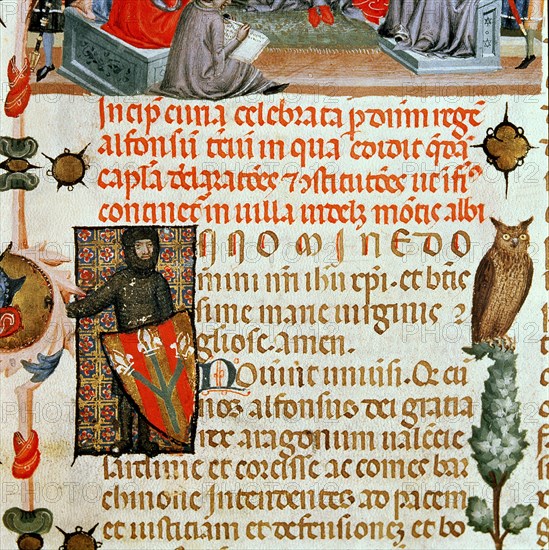 Incip̄ curia celebrata ꝑ dn̄m regē
alfonsū tciū in qua edidit qdā
capl̄a declaracōes ⁊ ꝯstitucōes ut ifrͣ
continet̄ in villa videlꝫ mōtis albi
INNOMINEDO
mini nr̄i ihū xp̄i. et btīs
sime marie virginis ⁊
gliōse. amen.
Nouint vniūsi. Q cū
nos alfonsus dei gratia
rex aragonum valencie
sardinie et corsice ac comes bar
chinone Intendentes ad pacem
et iusticiam et defensionem et bo
PHOTO 12